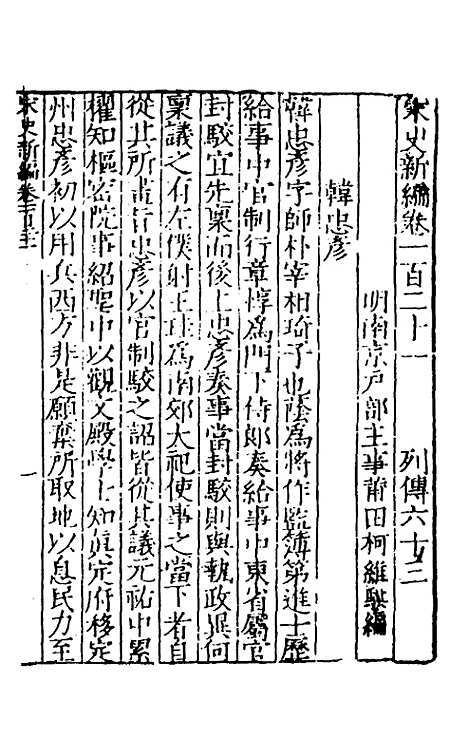 宋史新編卷一百二十一　列傳六十三
明南京戶部主事莆田柯維騏編
韓忠彥
韓忠彥字師朴宰相琦子也蔭爲將作監簿第進士歷
給事中官制行章惇爲門下侍郎奏給事中東省屬官
封駁宜先稟而後上忠彥奏事當封駁則與執政異何
稟議之有左僕射王珪爲南郊大祀使事之當下者自
從其所畫旨忠彥以官制駁之詔皆從其議元祐中累
擢知樞密院事紹聖中以觀文殿學士知眞定府移定
州忠彥初以用兵西方非是願棄所取地以息民力至
宋史新編卷一百二十一　一